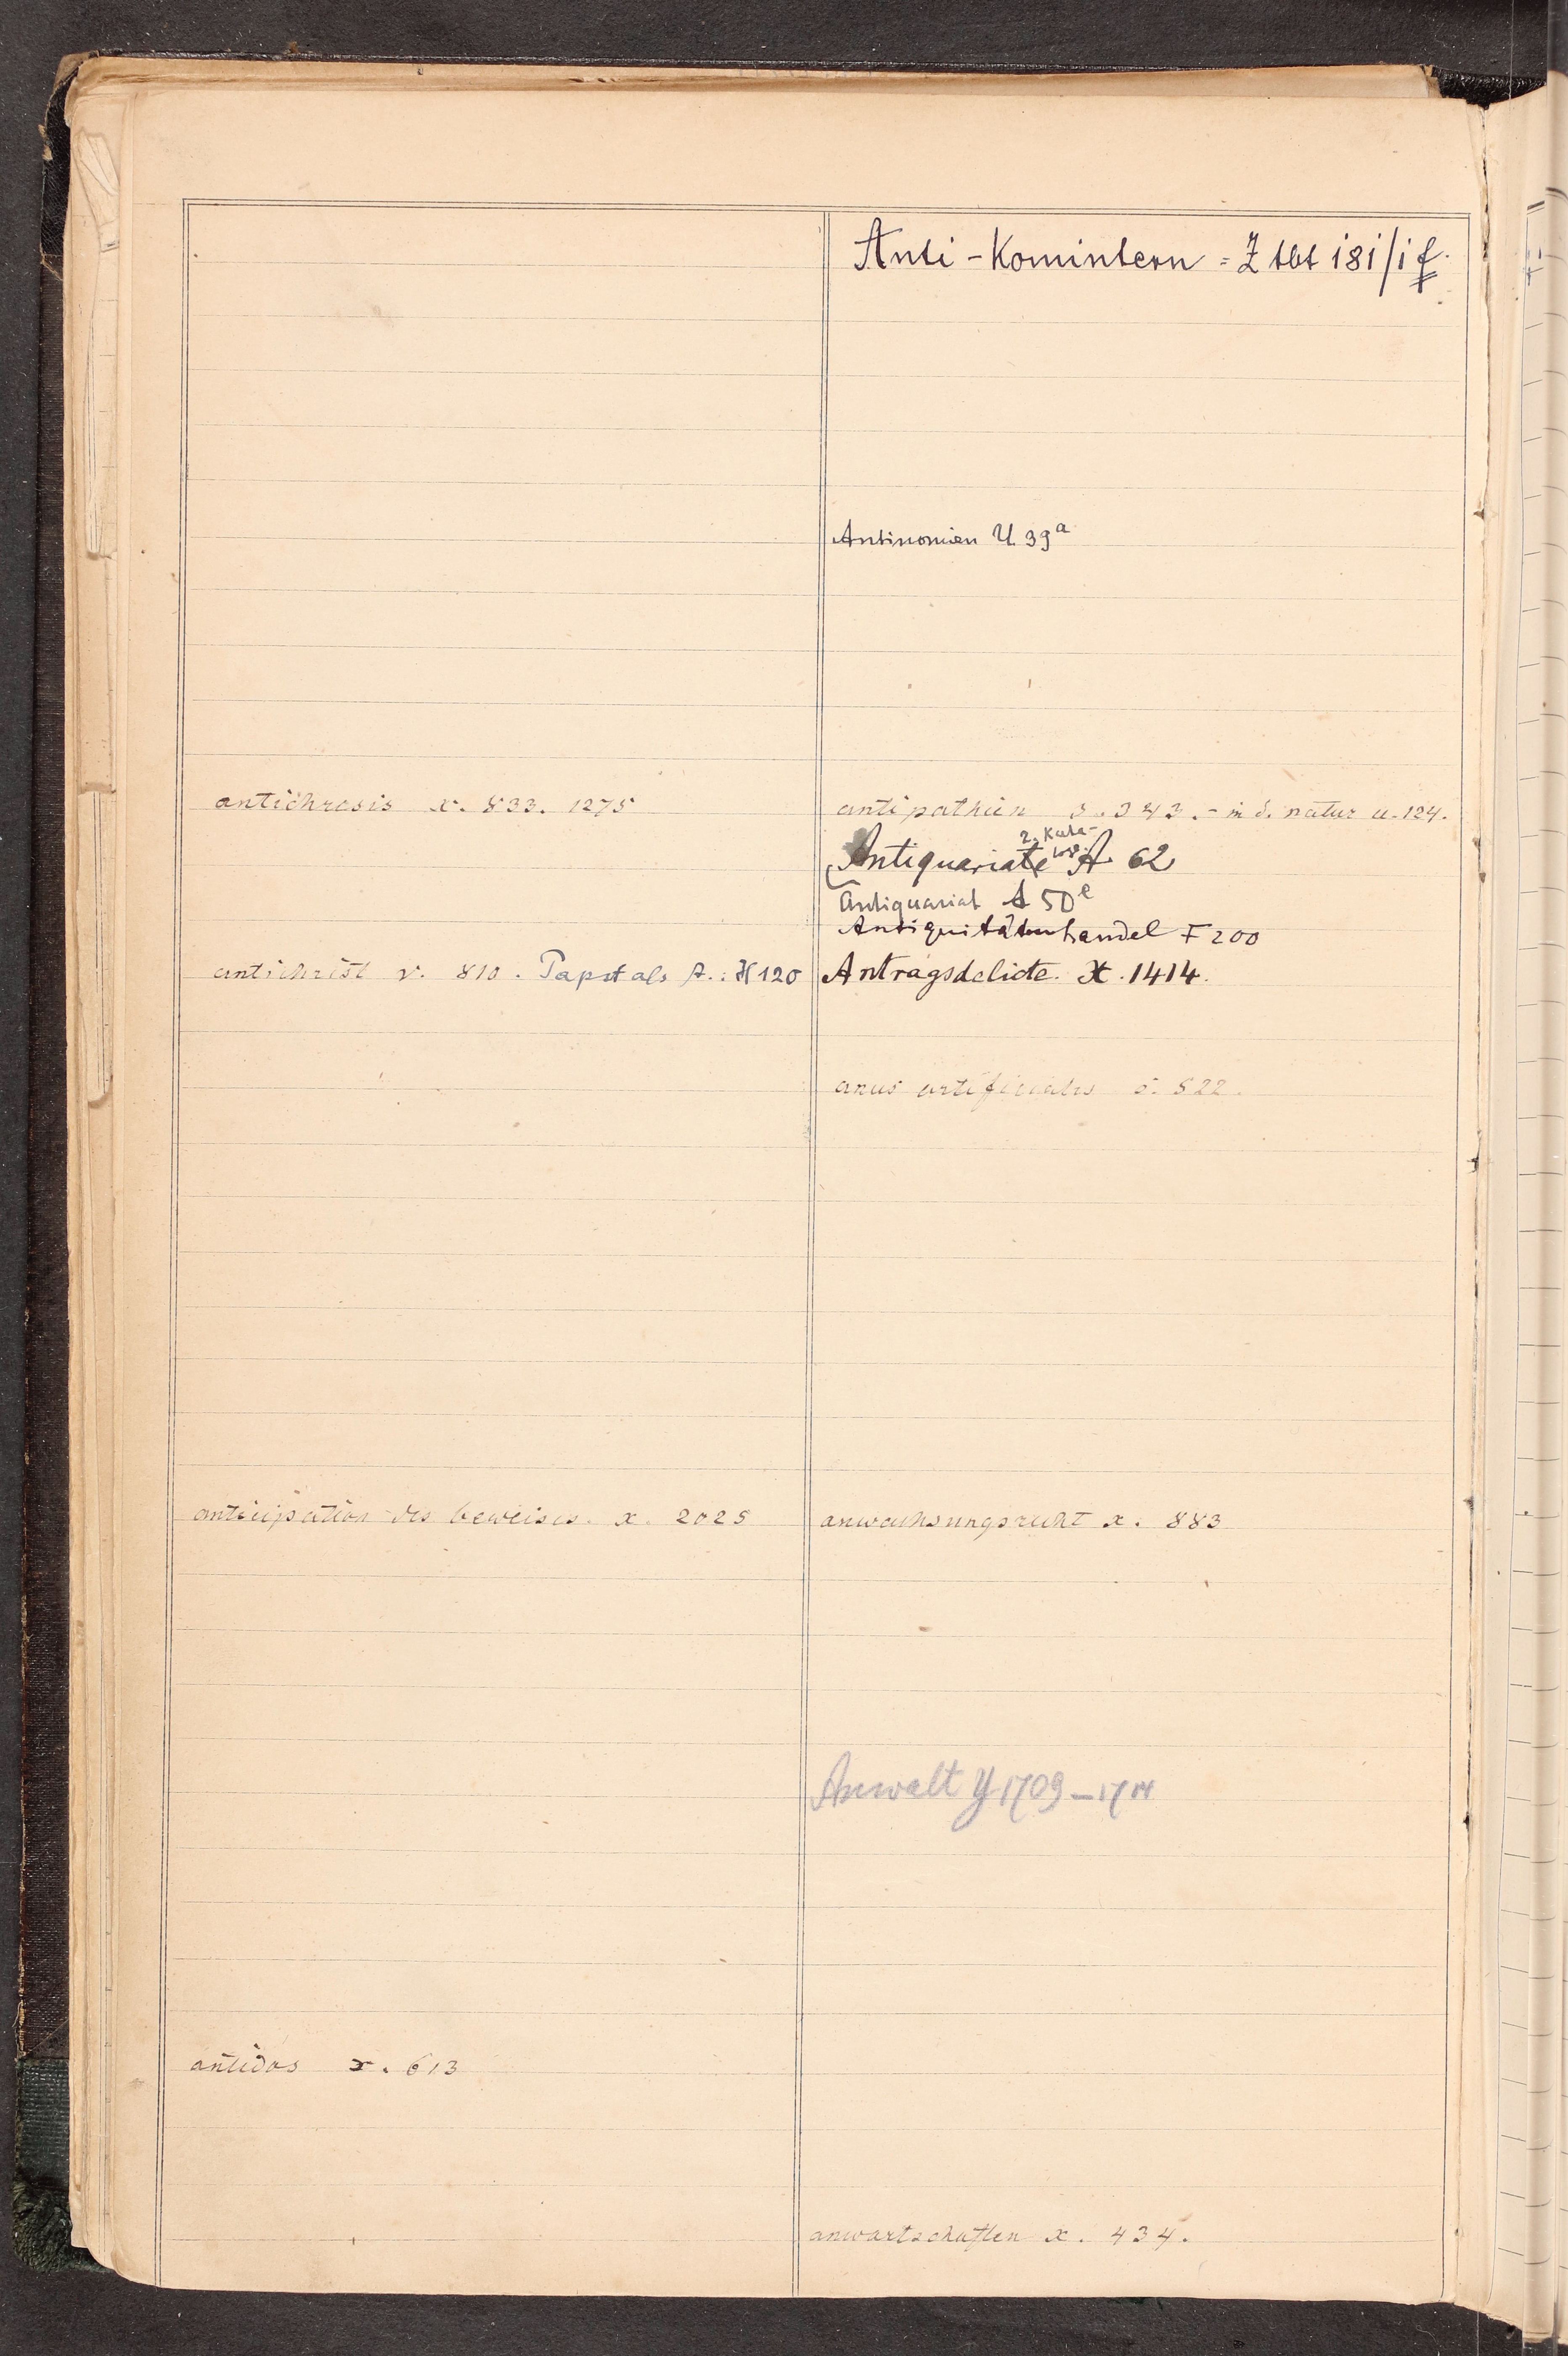 antichresis x. 833. 1275
antichrist v. 810. Papst als A.: H 120
anticipation des beweises. x. 2025
antidos x. 613
Anti-Komintern = Z tbt 181/1 f.
Antinomien U 39a
antipathien 3.343. - in d. natur u. 124.
z. Kata-
Antiquariate log. A 62
Antiquariat A 50e
Antiquitätenhandel F 200
Antragsdelicte. X. 1414.
anus artificialis 5. 522.
anwachsungsrecht x. 883
Anwalt Y 1709-1714
anwartschaften x. 434.